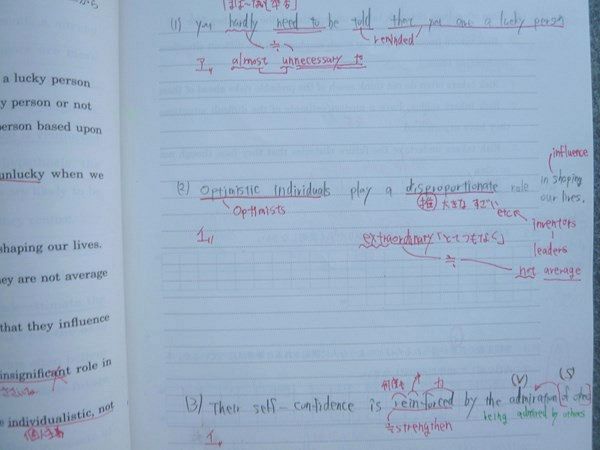 a lucky person
y person or not
erson based upon
unlucky when we
shaping our lives.
ey are not average
that they influence
insignificant role in
e individualistic, not
個人主義
(1) you hardly need to be told that you are a lucky person
reminded
≒
ア almost unnecessary to
influence
(2) Optimistic individuals play a disproportionate role in shaping
our lives.
Optimists
大きな すごい
etc
inventors
イ
extraordinary「とてつもなく」
leaders
≒
not average
(V) (S)
力
(3) Their self-confidence is reinforced by the admiration of
being admired by others
≒strengthen
イ